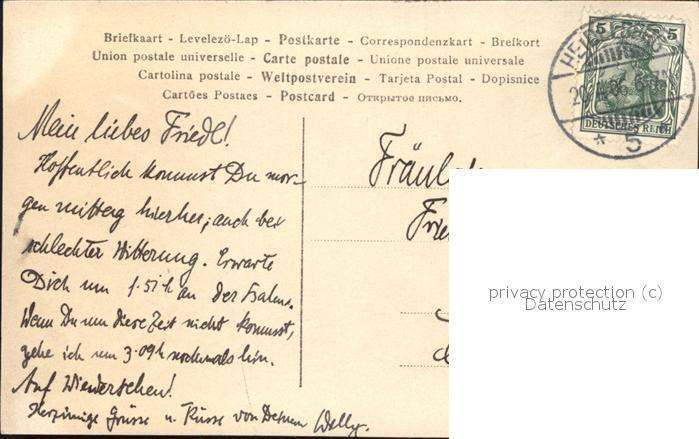 Briefkaart - Levelezö-Lap - Postkarte - Correspondenzkart - Brefkort
Union postale universelle - Carte postale - Unione postale universale
Cartolina postale - Weltpostverein - Tarjeta Postal - Dopisnice
Cartões Postaes - Postcard - Открытое письмо.
5 5
DEUTSCHES REICH
* 5
Mein liebes Friedl!
Hoffentlich kommst Du mor-
gen mittag hierher; auch bei
schlechter Witterung. Erwarte
Dich um 1.51 h an der Bahn.
Wenn Du um diese Zeit nicht kommst,
gehe ich um 3.09h nochmals hin.
Auf Wiedersehen!
Herzinnige Grüsse u. Küsse von Deinem Willy.
Fräul
Frie
privacy protection (c)
Datenschutz